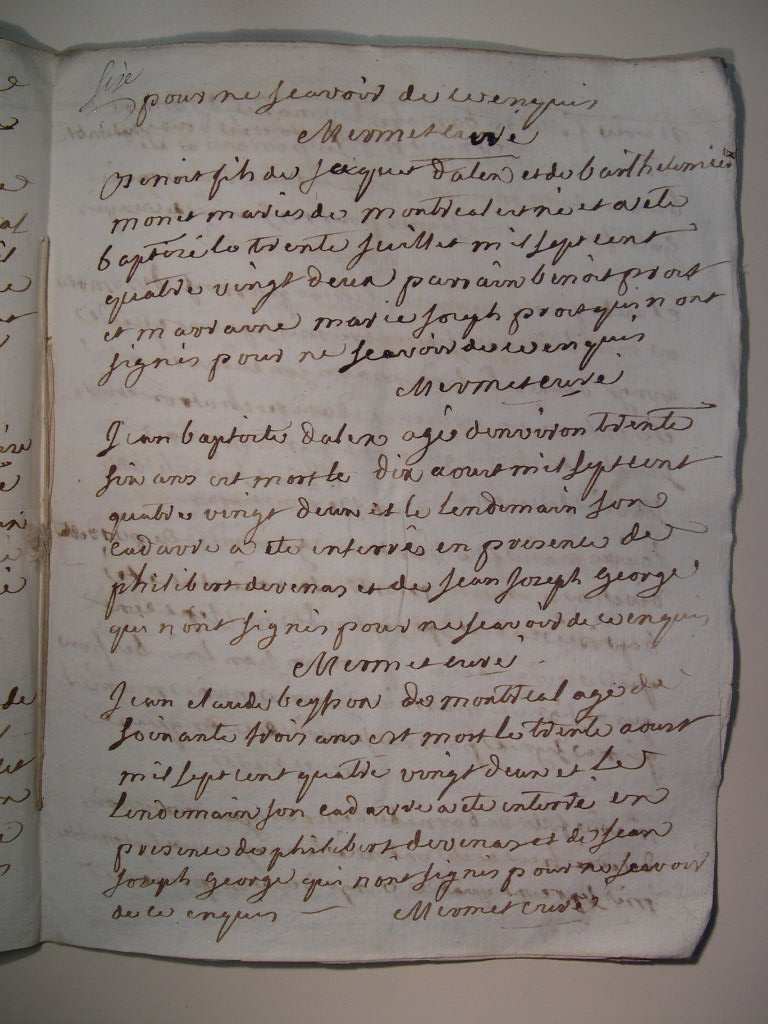 pour ne scavoir de ce enquis
Mermet curé
Benoit fils de jacques dalex et de barthelemie
monet mariés de montreal est né et a ete
baptizé le trente juillet mil sept cent
quatre vingt deux parrain benoit proit
et marraine marie joseph proit qui n ont
signés pour ne scavoir de ce enquis
Mermet curé
jean baptiste dalex agé denviron trente
six ans est mort le dix aoust mil sept cent
quatre vingt deux et le lendemain son
cadavre a ete interrés en presence de
philibert devenas et de jean joseph george
qui n ont signés pour ne scavoir de ce enquis
Mermet curé
jean claude beysson de montreal agé de
soixante trois ans est mort le trente aoust
mil sept cent quatre vingt deux et le
lendemain son cadavre a ete interré en
presence de philibert devenas et de jean
joseph george qui nont signés pour ne scavoir
de ce enquis — Mermet curé